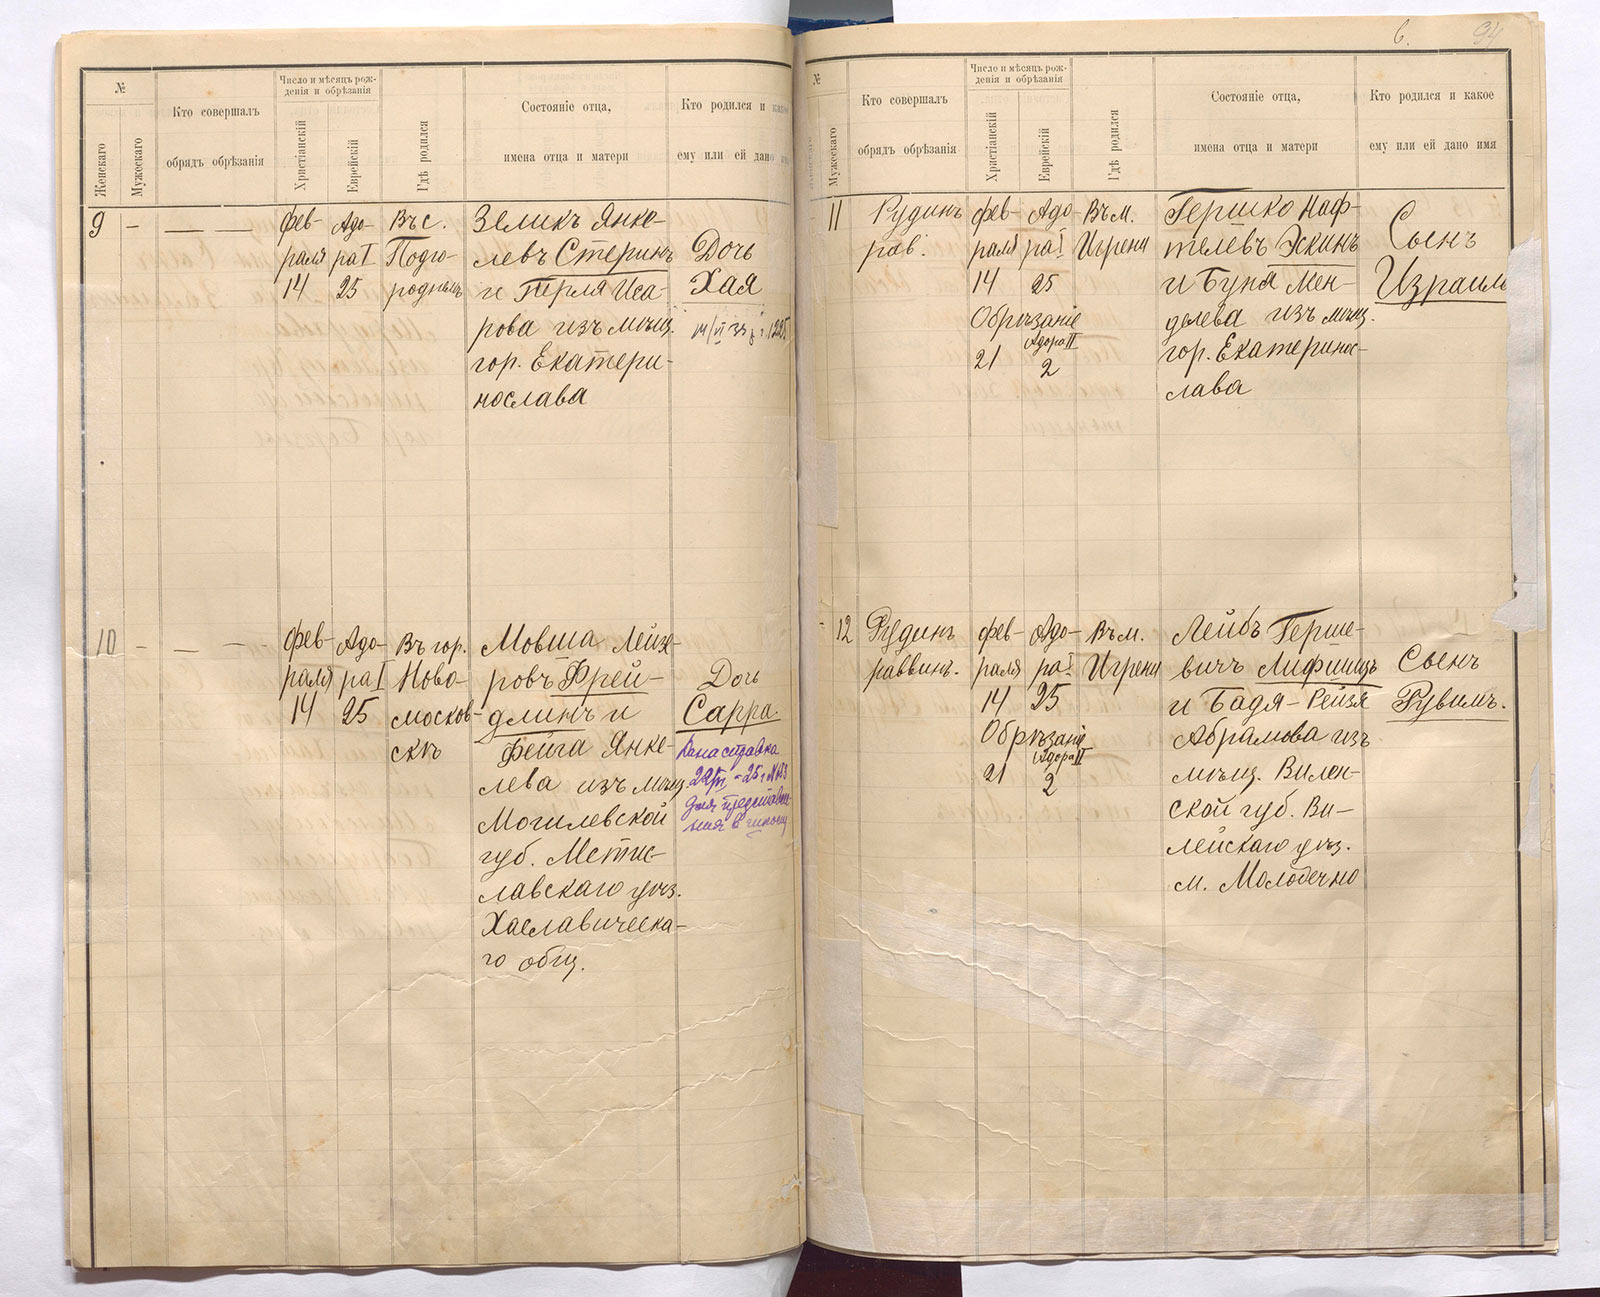 №
Женскаго
Мужескаго
Кто совершалъ
обрядъ обрѣзанія
Число и мѣсяцъ рож-
денія и обрѣзанія
Христіанскій
Еврейскій
Гдѣ родился
Состояніе отца,
имена отца и матери
Кто родился и како
ему или ей дано
9
— — —
Фев-
раля
14
Адо-
ра I
25
Въ с.
Подго-
родномъ
Зеликъ Янке-
левъ Стеринъ
и Тэрля Иса-
рова изъ мѣщ.
гор. Екатери-
нослава
Дочь
Хая
10
— — —
Фев-
раля
14
Адо-
ра I
25
Въ гор.
Ново-
москов-
скѣ
Мовша Лейзе-
ровъ Фрей-
длинъ и
Фейга Янке-
лева изъ мѣщ.
Могилевской
губ. Мстис-
лавскаго уѣз.
Хаславическа-
го общ.
Дочь
Сарра.
Дана справка
для представле-
ния в
6.
94
№
Мужескаго
Кто совершалъ
обрядъ обрѣзанія
Число и мѣсяцъ рож-
денія и обрѣзанія
Христіанскій
Еврейскій
Гдѣ родился
Состояніе отца,
имена отца и матери
Кто родился и какое
ему или ей дано имя
11
Рудинъ
рав.
Фев-
раля
14
Адо-
ра I
25
Обрѣзаніе
21
Адора II
2
Въ м.
Игрени
Гершко Наф-
телевъ Эскинъ
и Буня Мен-
делева изъ мѣщ.
гор. Екатеринос-
лава
Сынъ
Израиль
12
Рудинъ
раввинъ.
Фев-
раля
14
Адо-
ра I
25
Обрѣзаніе
21
Адора II
2
Въ м.
Игрени
Лейбъ Герше-
вичъ Лифшицъ
и Бадя-Рейзя
Абрамова изъ
мѣщ. Вилен-
ской губ. Ви-
лейскаго уѣз.
м. Молодечно
Сынъ
Рувимъ.